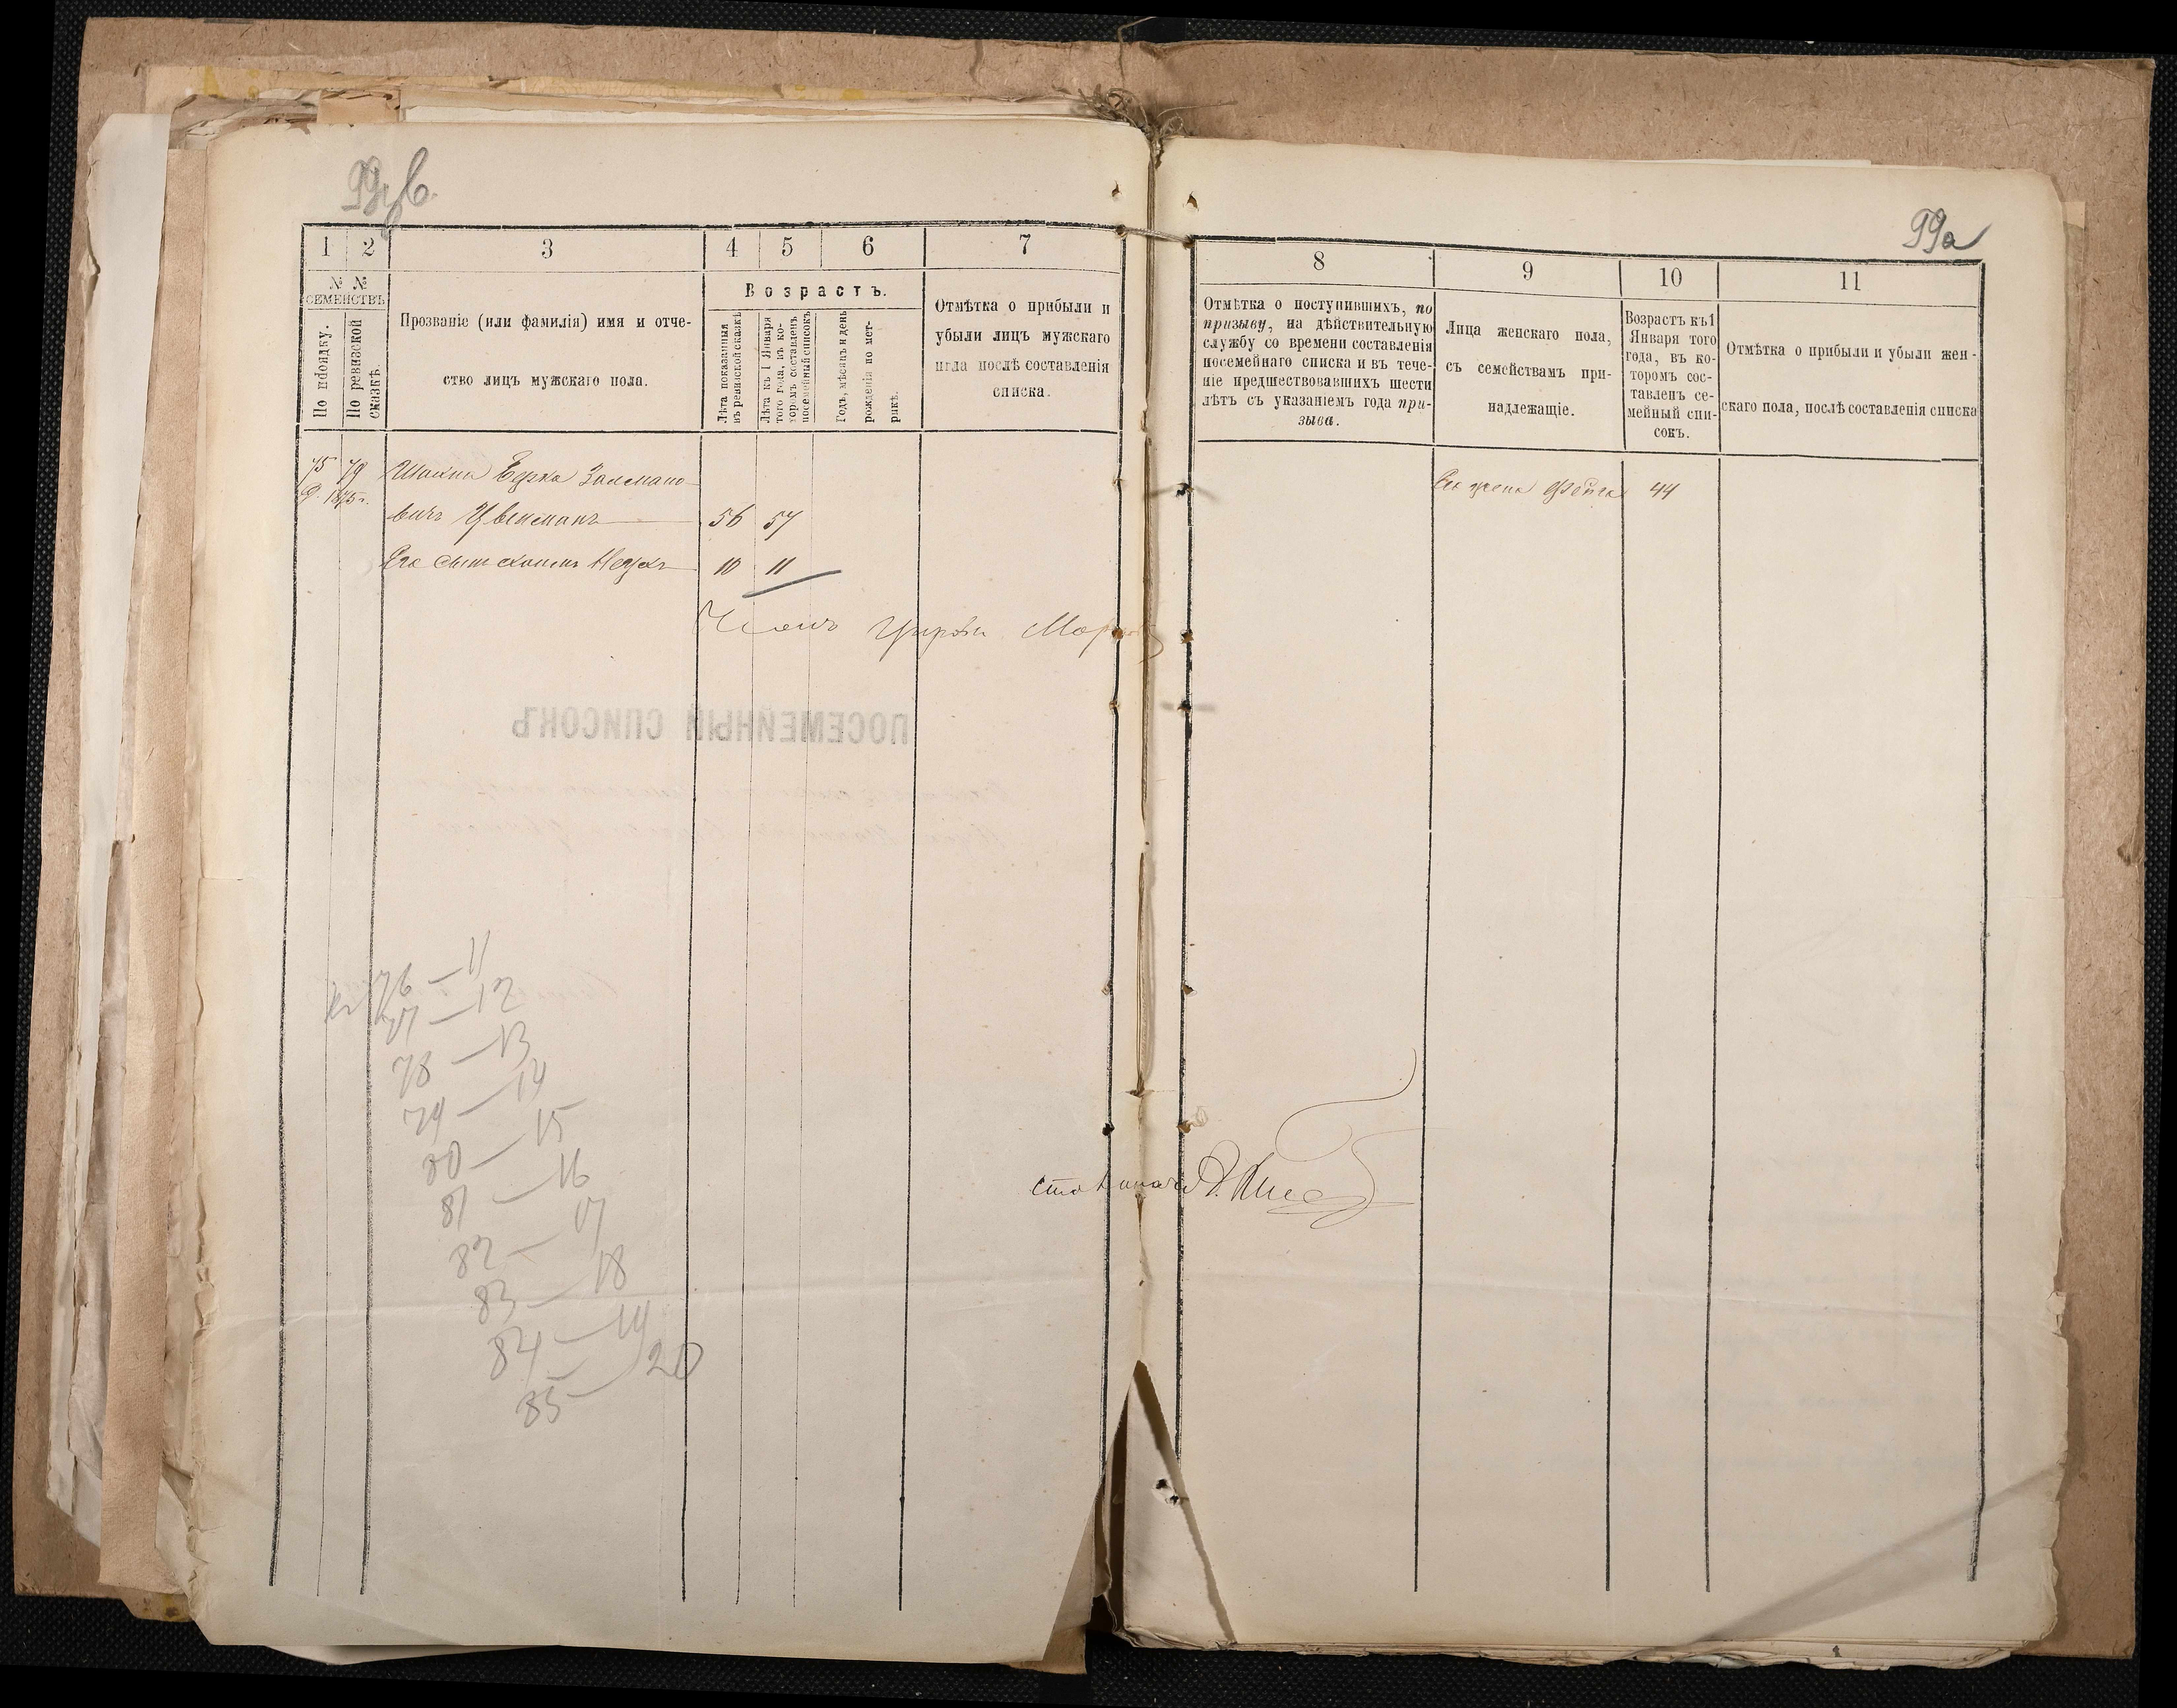 99а
1 2 3 4 5 6 7
№ №
СЕМЕЙСТВЪ
По порядку.
По ревизской
сказкѣ.
Прозваніе (или фамилія) имя и отче-
ство лицъ мужскаго пола.
Возрастъ.
Лѣта показанныя
въ ревизской сказкѣ
Лѣта къ 1 Января
того года, въ ко-
торомъ составленъ
посемейный списокъ
Годъ, мѣсяцъ и день
рожденія по мет-
рикѣ.
Отмѣтка о прибыли и
убыли лицъ мужскаго
пола послѣ составленія
списка.
8 9 10 11
Отмѣтка о поступившихъ, по
призыву, на дѣйствительную
службу со времени составленія
посемейнаго списка и въ тече-
ніе предшествовавшихъ шести
лѣтъ съ указаніемъ года при-
зыва.
Лица женскаго пола,
съ семействамъ при-
надлежащіе.
Возрастъ къ 1
Января того
года, въ ко-
торомъ сос-
тавленъ се-
мейный спи-
сокъ.
Отмѣтка о прибыли и убыли жен-
скаго пола, послѣ составленія списка
75 79 Берко Залмано-
1875 г.
вичъ 56 57
Его сынъ 10 11
Его жена Фейга 44
ПОСЕМЕЙНЫЙ СПИСОКЪ
76 — 11
77 — 12
78 — 13
79 — 14
80 — 15
81 — 16
82 — 17
83 — 18
84 — 19
85 — 20